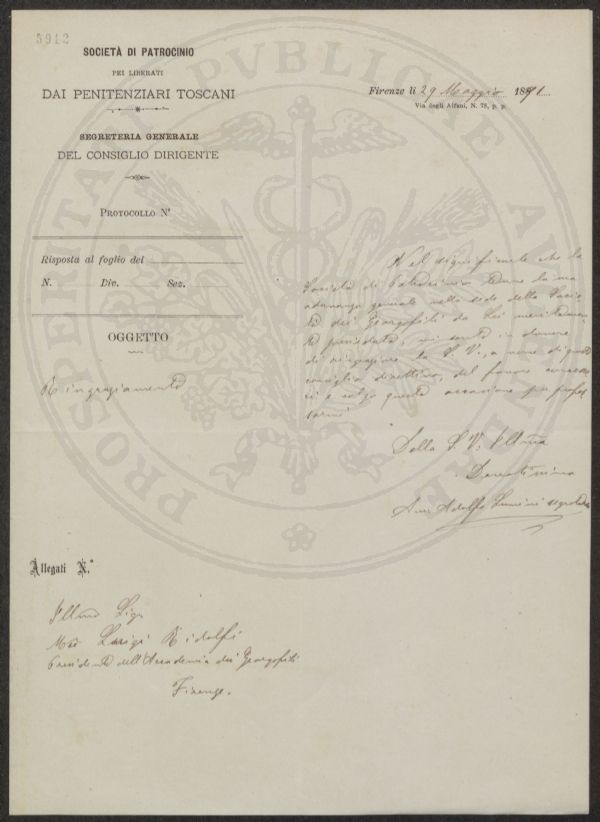 5942
SOCIETÀ DI PATROCINIO
PEI LIBERATI
DAI PENITENZIARI TOSCANI
SEGRETERIA GENERALE
DEL CONSIGLIO DIRIGENTE
PROTOCOLLO N°
Risposta al foglio del
N. Div. Sez.
OGGETTO
Ringraziamento
Firenze li 29 Maggio 1891
Via degli Alfani, N. 78, p. p.
Nel significarle che la
Società di Patrocinio tenne la sua
adunanza generale nella sede della Socie
tà dei Georgofili da Lei meritamen
te presieduta, mi sento in dovere
di ringraziare la S. V., a nome di questo
consiglio direttivo, del favore
e colgo questa occasione per profes
sarmi
Della S. V. Illma
Devotissimo
Avv. Adolfo segretario
Allegati N.°
Illmo Sig.
Luigi Ridolfi
Presidente dell'Accademia dei Georgofili
Firenze.
PROSPERITATI PVBLICAE AVGENDAE